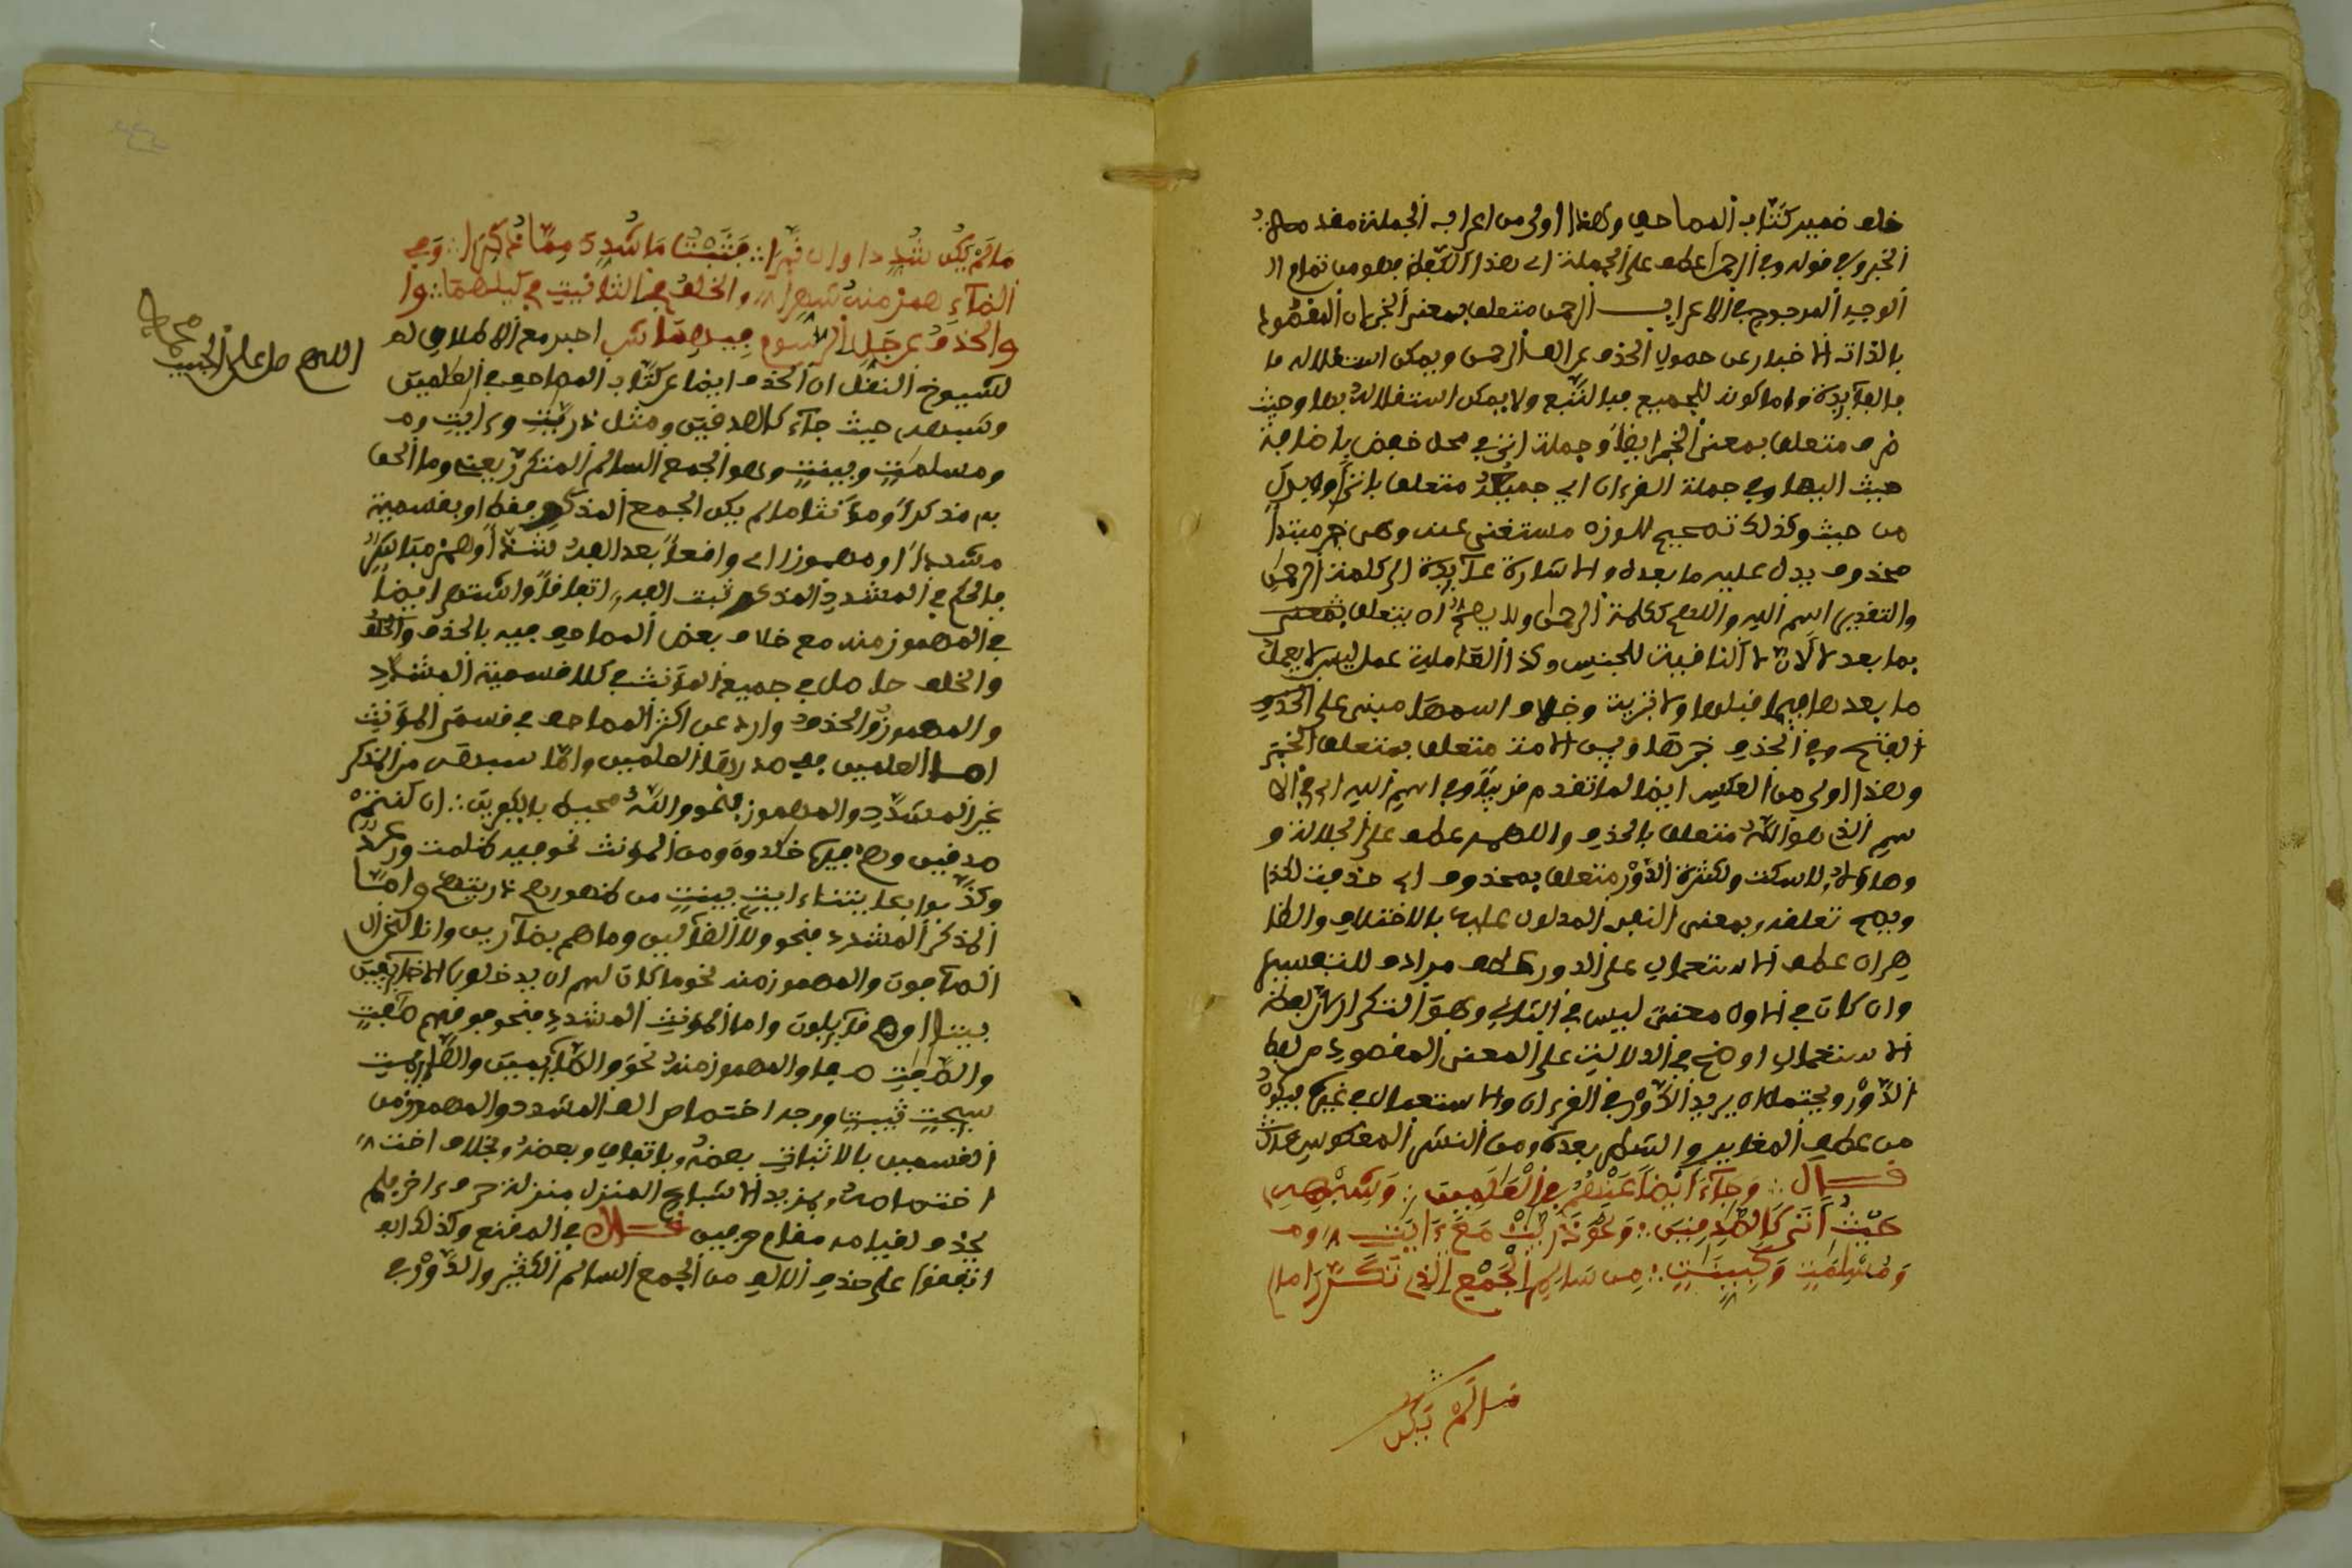 خلف ضمير كتّاب المصاحف وهذا اولى من اعراب الجملة مقدمة
الخبر وفي قوله وفي الرحمن عطف على الجملة اي هذا اللفظ فهو من تمام
الوجيه المرجوح في الاعراب الرحمن متعلق بمعنى الخبر لان المقصود
بالذات الاخبار عن حصول الحذف عن الف الرحمن ويمكن استقلاله
بالفائدة واما كونه للجميع فبالتبع ولا يمكن استقلاله بها وحيث
ظرف متعلق بمعنى الخبر ايضا وجملة اتى في محل خفض باضافة
حيث اليها وفي جملة القرءان اي جميعه متعلق باتى او بدل
من حيث وكذلك تصحيح للوزن مستغنى عنه وهي خبر مبتدا
محذوف يدل عليه ما بعده والاشارة عائدة الى كلمة الرحمن
والتقدير اسم الله واللهم ككلمة الرحمن ولا يصح ان يتعلق بمعنى
بما بعد لا لان لا النافية للجنس وكذا العاملة عمل ليس لا يعمل
ما بعدها فيما قبلها ولا خزيت وخلاف اسمها مبني على
الفتح وفي الحذف خبرها وبين الامة متعلق بمتعلق الخبر
وهذا اولى من العكس ايضا لما تقدم قريبا وفي اسم الله اي في الا
سم الذي هو الله متعلق بالحذف واللهم عطف على الجلالة و
وهاؤه للسكت ولكثرة الدور متعلق بمحذوف اي حذفت لكذا
ويصح تعلقه بمعنى النفي المدلول عليه بالاختلاف والظا
هر ان عطف الاستعمال على الدور عطف مرادف للتفسير
وان كان في الاول معنى ليس في الثاني وهو التكرار لان لفظة
الاستعمال اوضح في الدلالة على المعنى المقصود من لفظ
الدور ويحتمل ان يريد الدور في القرءان والاستعمال في غيره فيكون
من عطف المغاير والشطر بعده ومن النشر المعكوس
قال وجاء ايضا عنهم في العلمين وشبهه
حيث اتى كالصدقين ونحو ذريت مع ءايت وم
ومسلمت وكبينت من سالم الجمع الذي تكررا ما
ما لم يكن
ما لم يكن شدد او ان نبرا فثبتت ما شدد مما ذكرا وفي
الذي همز منه شهرا والخلف في التانيث في كليهما وا
والحذف عن جل الرسوم فيهما ش اخبر مع الاطلاق له
لشيوخ النقل ان الحذف ايضا عن كتاب المصاحف في العلمين
وشبهه حيث جاء كالصدقين ومثل ذريت وءايت وم
ومسلمت وبينت وهو الجمع السالم المتكرر بعينه وما الحق
به مذكرا ومؤنثا ما لم يكن الجمع المذكور فقط او بقسميه
مشددا او مهموزا اي واقعا بعد الفه شد او همز مباشر
فالحكم في المشدد المذكور ثبت الفه اتفاقا واشتهر ايضا
في المهموز منه مع خلاف بعض المصاحف فيه بالحذف والخلف
والخلف حاصل في جميع المؤنث في كلا قسميه المشدد
والمهموز والحذف وارد عن اكثر المصاحف في قسمي المؤنث
اما العلمين فهي صدر بها العلمين واما شبهه من المذكر
غير المشدد والمهموز فنحو والله محيط بالكفرين ان كنتم
صدقين وهم فيها خلدون ومن المؤنث نحو فيه ظلمت ورعد
وكذبوا بءايتنا ءايت بينت من ظهورهم ذريتهم واما
المذكر المشدد فنحو ولا الضالين وما هم بضارين وانا لنحن
الصافون والمهموز منه نحو ما كان لهم ان يدخلوها الا خائفين
بيتا او هم قائلون واما المؤنث المشدد فنحو فوقهم صفت
والصفت صفا والمهموز منه نحو والصئمين والصئمت
سئحت ثيبت ووجه اختصاص الف المشدد والمهموز من
القسمين بالاثبات بعضه باتفاق وبعضه بخلاف اخت
اختصاصه بمزيد الاشباع المنزل منزلة حرف ءاخر فلم
يحذف لقيامه مقام حرفين قال في المقنع وكذلك ا
اتفقوا على حذف الالف من الجمع السالم الكثير الدور في
اللهم صل على الحبيب
محمد